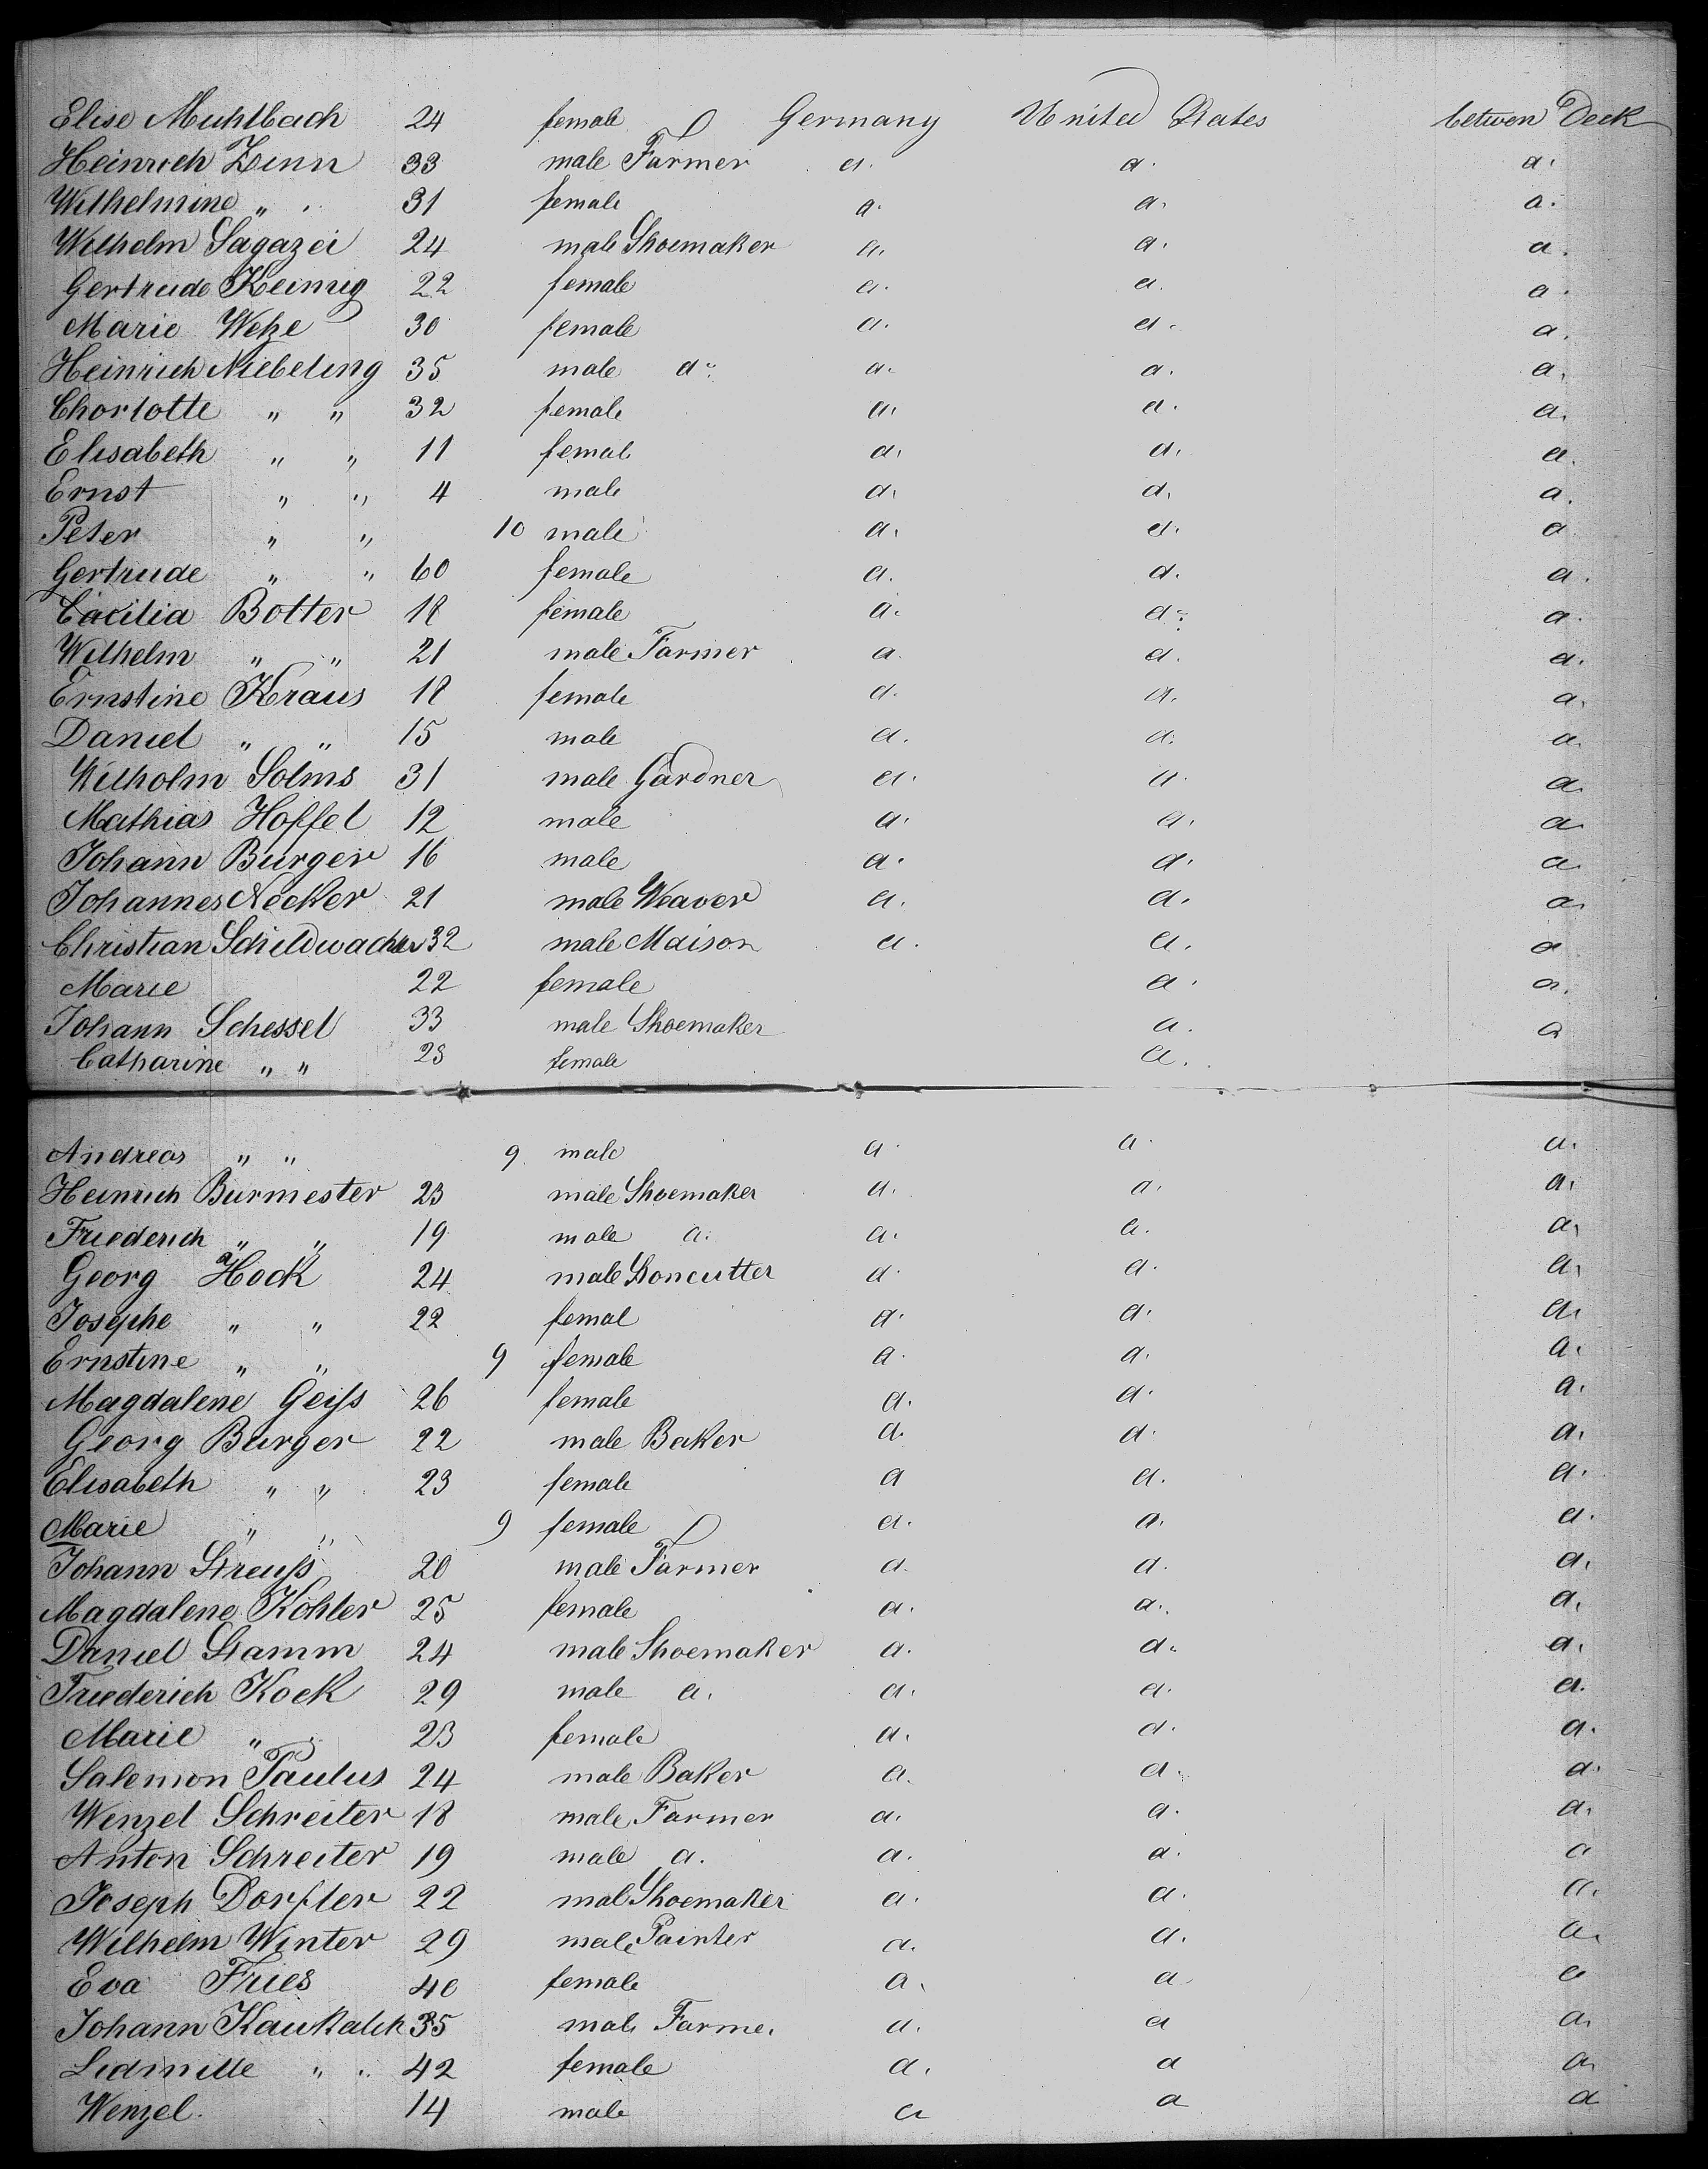 Elise Muhlbach 24 female Germany United States betwen Deck
Heinrich Zinn 33 male Farmer a. a. a.
Wilhelmine " 31 female a. a. a.
Wilhelm Sagazei 24 male Shoemaker a. a. a.
Gertrude Keimig 22 female a. a. a.
Marie 30 female a. a. a.
Heinrich Niebeling 35 male a. a. a. a.
Chorlotte " " 32 female a. a. a.
Elisabeth " " 11 femal a. a. a.
Ernst " " 4 male a. a. a.
Peter " " 10 male a. a. a.
Gertrude " " 60 female a. a. a.
Cäcilia Botter 18 female a. a. a.
Wilhelm " " 21 male Farmer a. a. a.
Ernstine Kraus 18 female a. a. a.
Daniel " " 15 male a. a. a.
Wilholm Solms 31 male Gardner a. a. a.
Mathias Hoffel 12 male a. a. a.
Johann Burger 16 male a. a. a.
Johannes Necker 21 male Weaver a. a. a.
Christian Schildwachter 32 male Maison a. a. a
Marie 22 female a. a.
Johann Schessel 33 male Shoemaker a. a
Catharine " " 28 female a.
Andreas " " 9 male a. a. a.
Heinrich Burmester 23 male Shoemaker a. a. a.
Friederich " " 19 male a. a. a. a.
Georg Hock 24 male Stoncutter a. a. a.
Josephe " " 22 femal a. a. a.
Ernstine " " 9 female a. a. a.
Magdalene Geiſs 26 female a. a. a.
Georg Burger 22 male Baker a. a. a.
Elisabeth " " 23 female a a. a.
Marie " " 9 female a. a. a.
Johann Streuſs 20 male Farmer a. a. a.
Magdalene Kohler 25 female a. a. a.
Daniel Stamm 24 male Shoemaker a. a. a.
Friederich Kock 29 male a. a. a. a.
Marie " 23 female a. a. a.
Salemon Paulus 24 male Baker a. a. a.
Wenzel Schreiter 18 male Farmer a. a. a.
Anton Schreiter 19 male a. a. a. a
Joseph Dorfler 22 mal Shoemaker a. a. a.
Wilhelm Winter 29 male Painter a. a. a.
Eva Fries 40 female a. a a
Johann Kaukalik 35 male Farmer a. a a.
Ludmille " " 42 female a. a a
Wenzel 14 male a a a